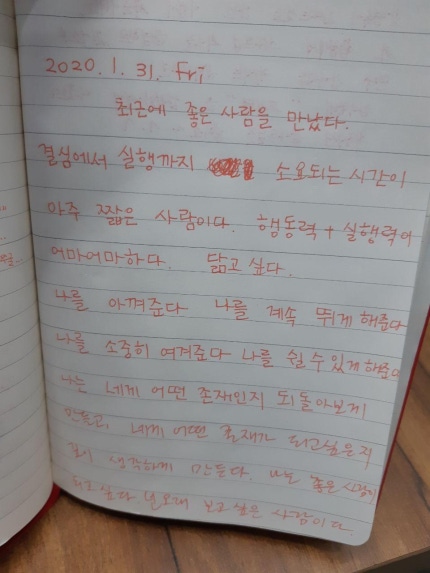 2020. 1. 31. Fri
최근에 좋은 사람을 만났다.
결심에서 실행까지 소요되는 시간이
아주 짧은 사람이다. 행동력 + 실행력이
어마어마하다. 닮고 싶다.
나를 아껴준다 나를 계속 뛰게 해준다
나를 소중히 여겨준다 나를 쉴 수 있게 해준다
나는 네게 어떤 존재인지 되돌아보게
만들고, 네게 어떤 존재가 되고싶은지
다시 생각하게 만든다. 나는 좋은 사람이
되고싶다 널 오래 보고 싶은 사람이다.